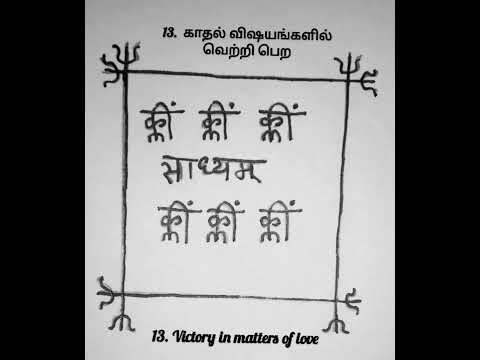 13. காதல் விஷயங்களில்
வெற்றி பெற
क्लीं क्लीं क्लीं
साध्यम्
क्लीं क्लीं क्लीं
13. Victory in matters of love